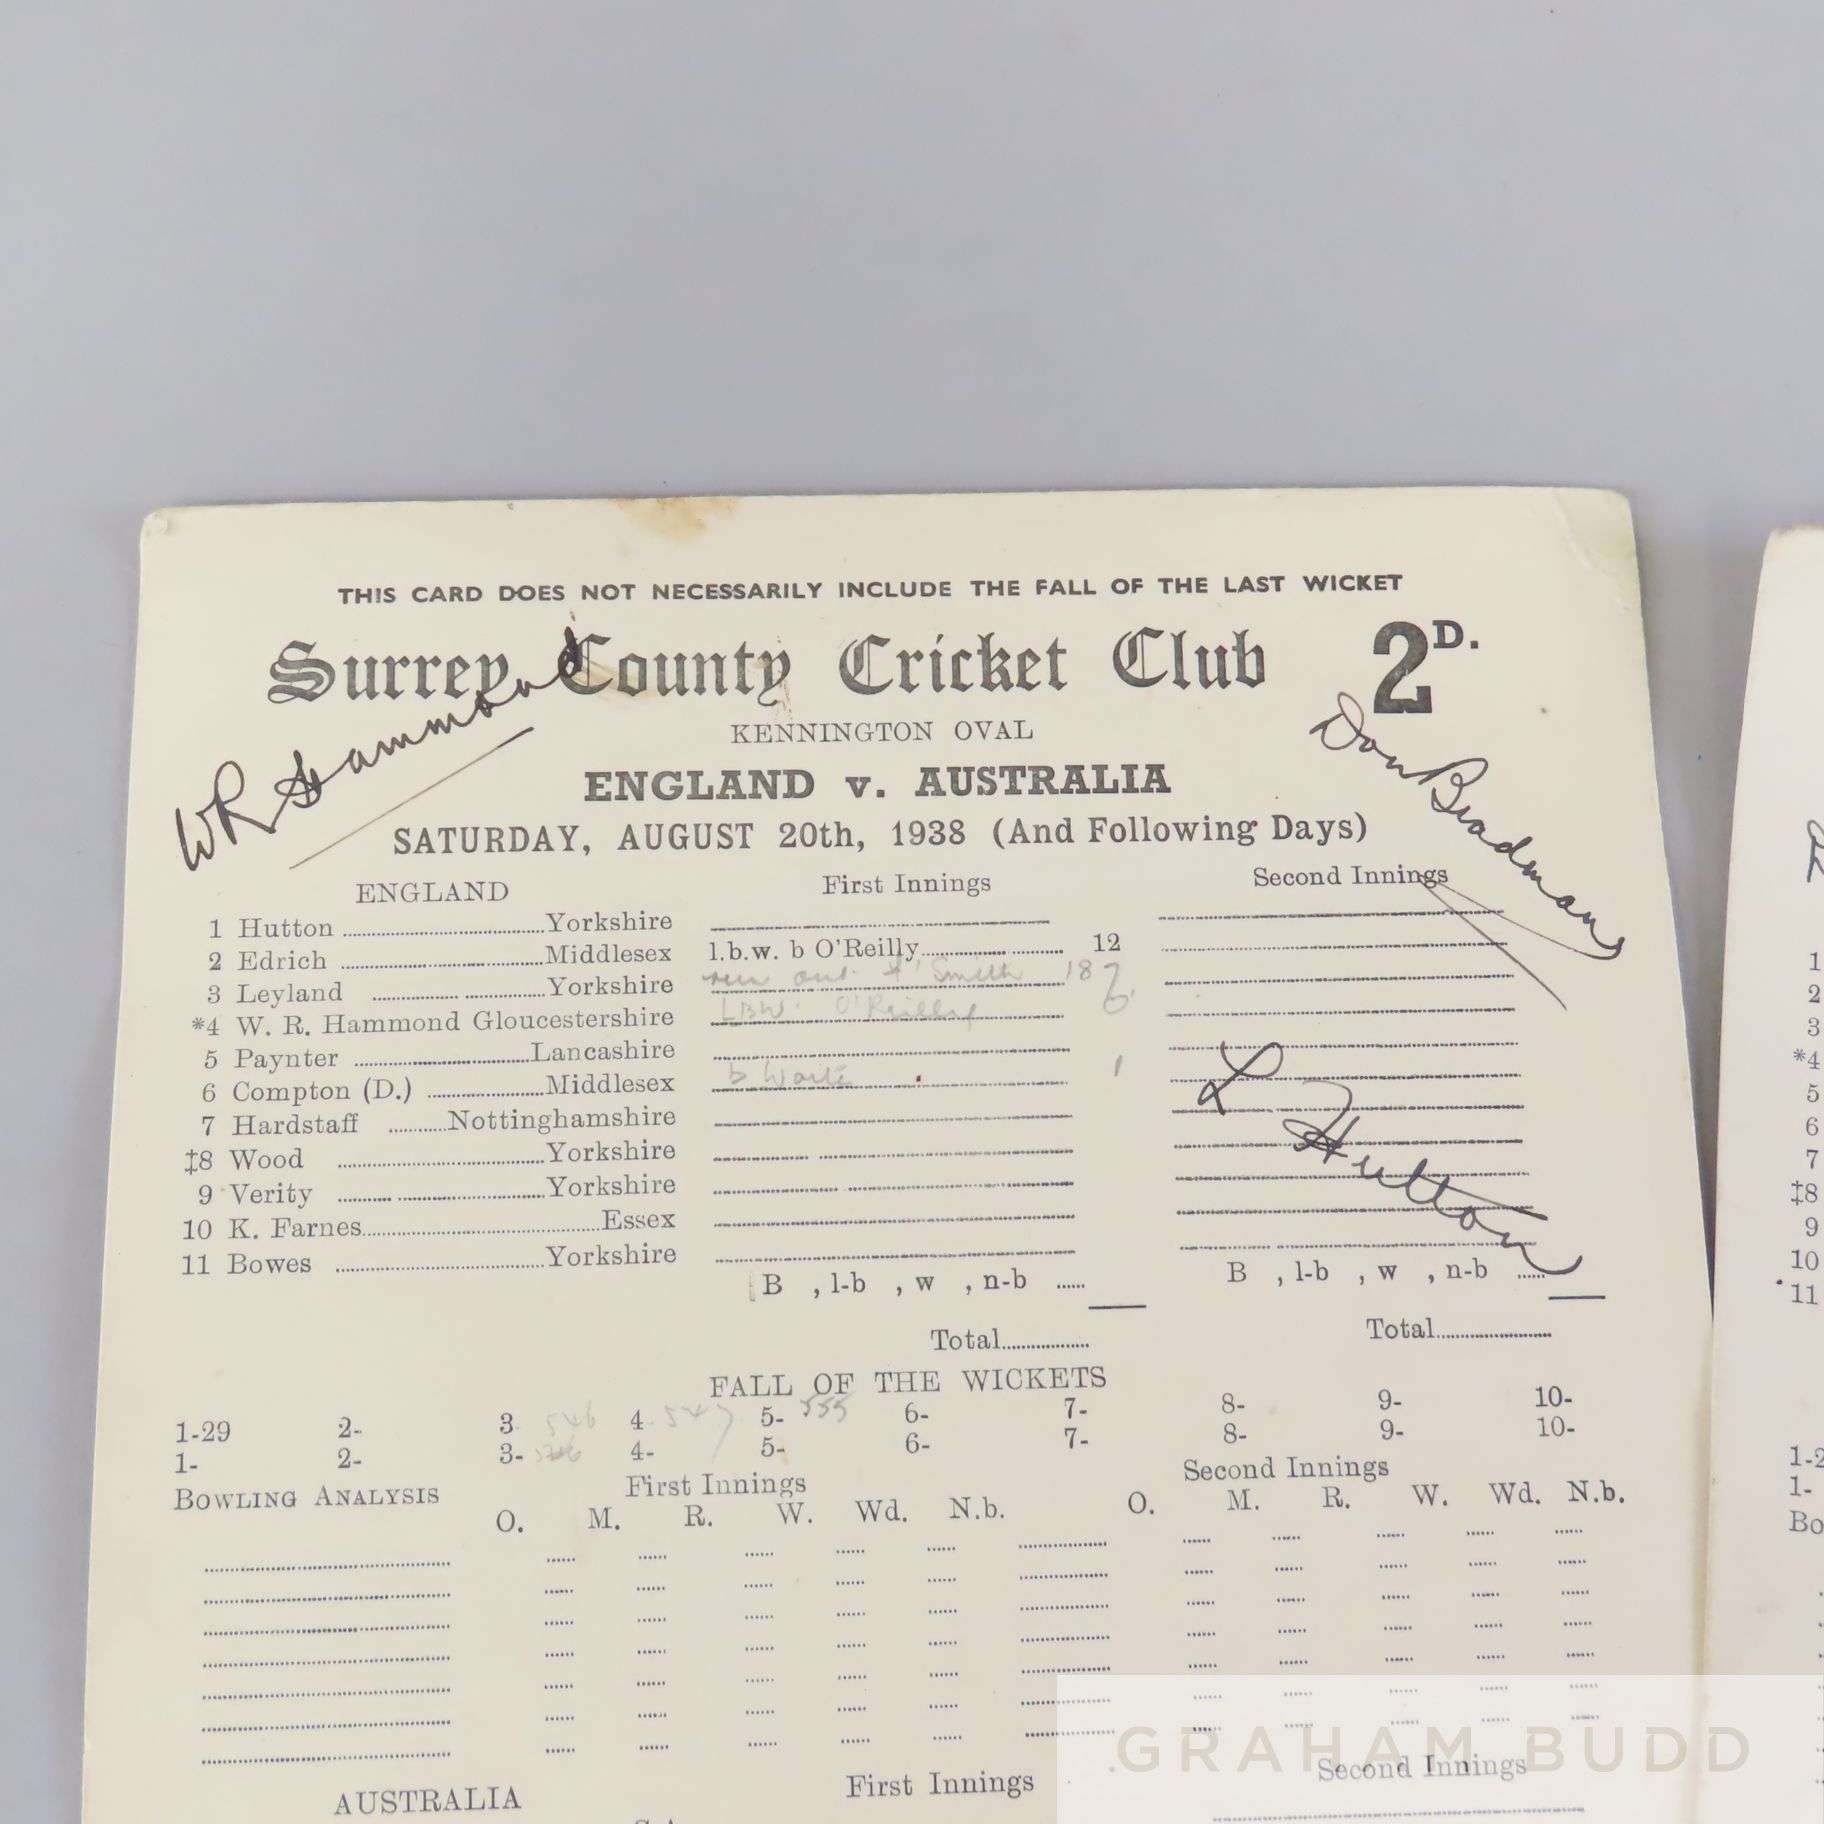 THIS CARD DOES NOT NECESSARILY INCLUDE THE FALL OF THE LAST WICKET
Surrey County Cricket Club 2D.
WR Hammond
KENNINGTON OVAL
Don Bradman
ENGLAND v. AUSTRALIA
SATURDAY, AUGUST 20th, 1938 (And Following Days)
ENGLAND First Innings Second Innings
1 Hutton Yorkshire
2 Edrich Middlesex l.b.w. b O'Reilly 12
3 Leyland Yorkshire run out Smith 187
*4 W. R. Hammond Gloucestershire LBW O'Reilly
5 Paynter Lancashire
6 Compton (D.) Middlesex b 1
7 Hardstaff Nottinghamshire
‡8 Wood Yorkshire
9 Verity Yorkshire
10 K. Farnes Essex
11 Bowes Yorkshire
L Hutton
B , l-b , w , n-b ...... B , l-b , w , n-b ......
Total Total
FALL OF THE WICKETS
1-29 2- 3 546 4 547 5- 555 6- 7- 8- 9- 10-
1- 2- 3- 4- 5- 6- 7- 8- 9- 10-
BOWLING ANALYSIS First Innings Second Innings
O. M. R. W. Wd. N.b. O. M. R. W. Wd. N.b.
AUSTRALIA First Innings Second Innings
GRAHAM BUDD
1
2
3
*4
5
6
7
‡8
9
10
11
1-2
1-
Bo